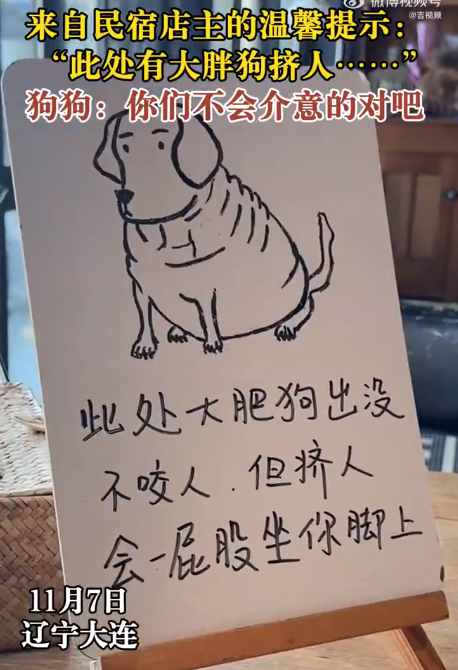 微博视频号
@吉视频
来自民宿店主的温馨提示：
“此处有大胖狗挤人……”
狗狗：你们不会介意的对吧
此处大肥狗出没
不咬人.但挤人
会一屁股坐你脚上
11月7日
辽宁大连